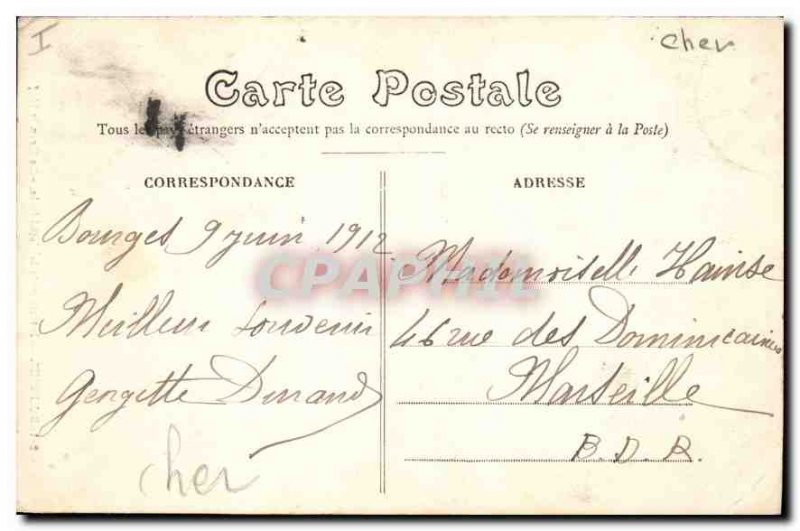 I
cher
Carte Postale
Tous les pays étrangers n'acceptent pas la correspondance au recto (Se renseigner à la Poste)
CORRESPONDANCE
Bourges 9 juin 1912
Meilleur souvenir
Georgette Durand
cher
ADRESSE
Mademoiselle Hainse
46 rue des Dominicaines
Marseille
B.D.R.
CPAPHIL